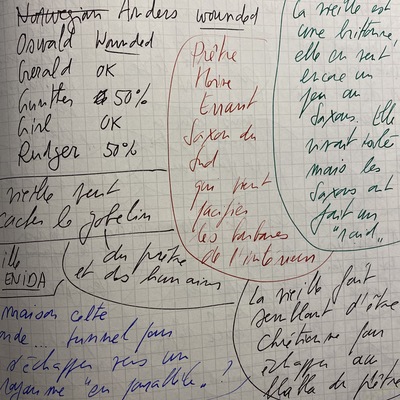 Norwegian Anders wounded
Oswald Wounded
Gerald OK
Gunther 50%
Girl OK
Rudger 50%
Prêtre
Moine
Errant
Saxon du
Sud
qui veut
pacifier
les barbares
de l'intérieur
La vieille est
une brittonne,
elle en veut
encore un
peu aux
Saxons. Elle
mais les
Saxons ont
fait un
"raid"
vieille veut
cacher le gobelin
du prêtre
et des humains
ENIDA
maison celte
tunnel pour
s'échapper vers un
royaume "en parallèle" ?
La vieille fait
semblant d'être
chrétienne pour
échapper au
blabla du prêtre